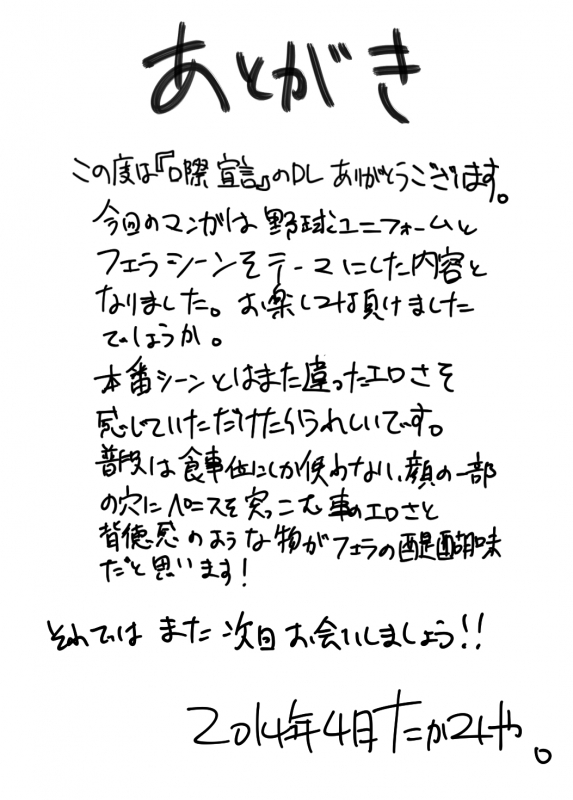 あとがき
この度は『口際宣言』のDLありがとうございます。
今回のマンガは野球ユニフォームと
フェラシーンをテーマにした内容と
なりました。お楽しみ頂けました
でしょうか。
本番シーンとはまた違ったエロさを
感じていただけたらうれしいです。
普段は食事位にしか使わない顔の一部
の穴にペニスを突っこむ事のエロさと
背徳感のような物がフェラの醍醐味
だと思います!
それではまた次回お会いしましょう!!
2014年4月